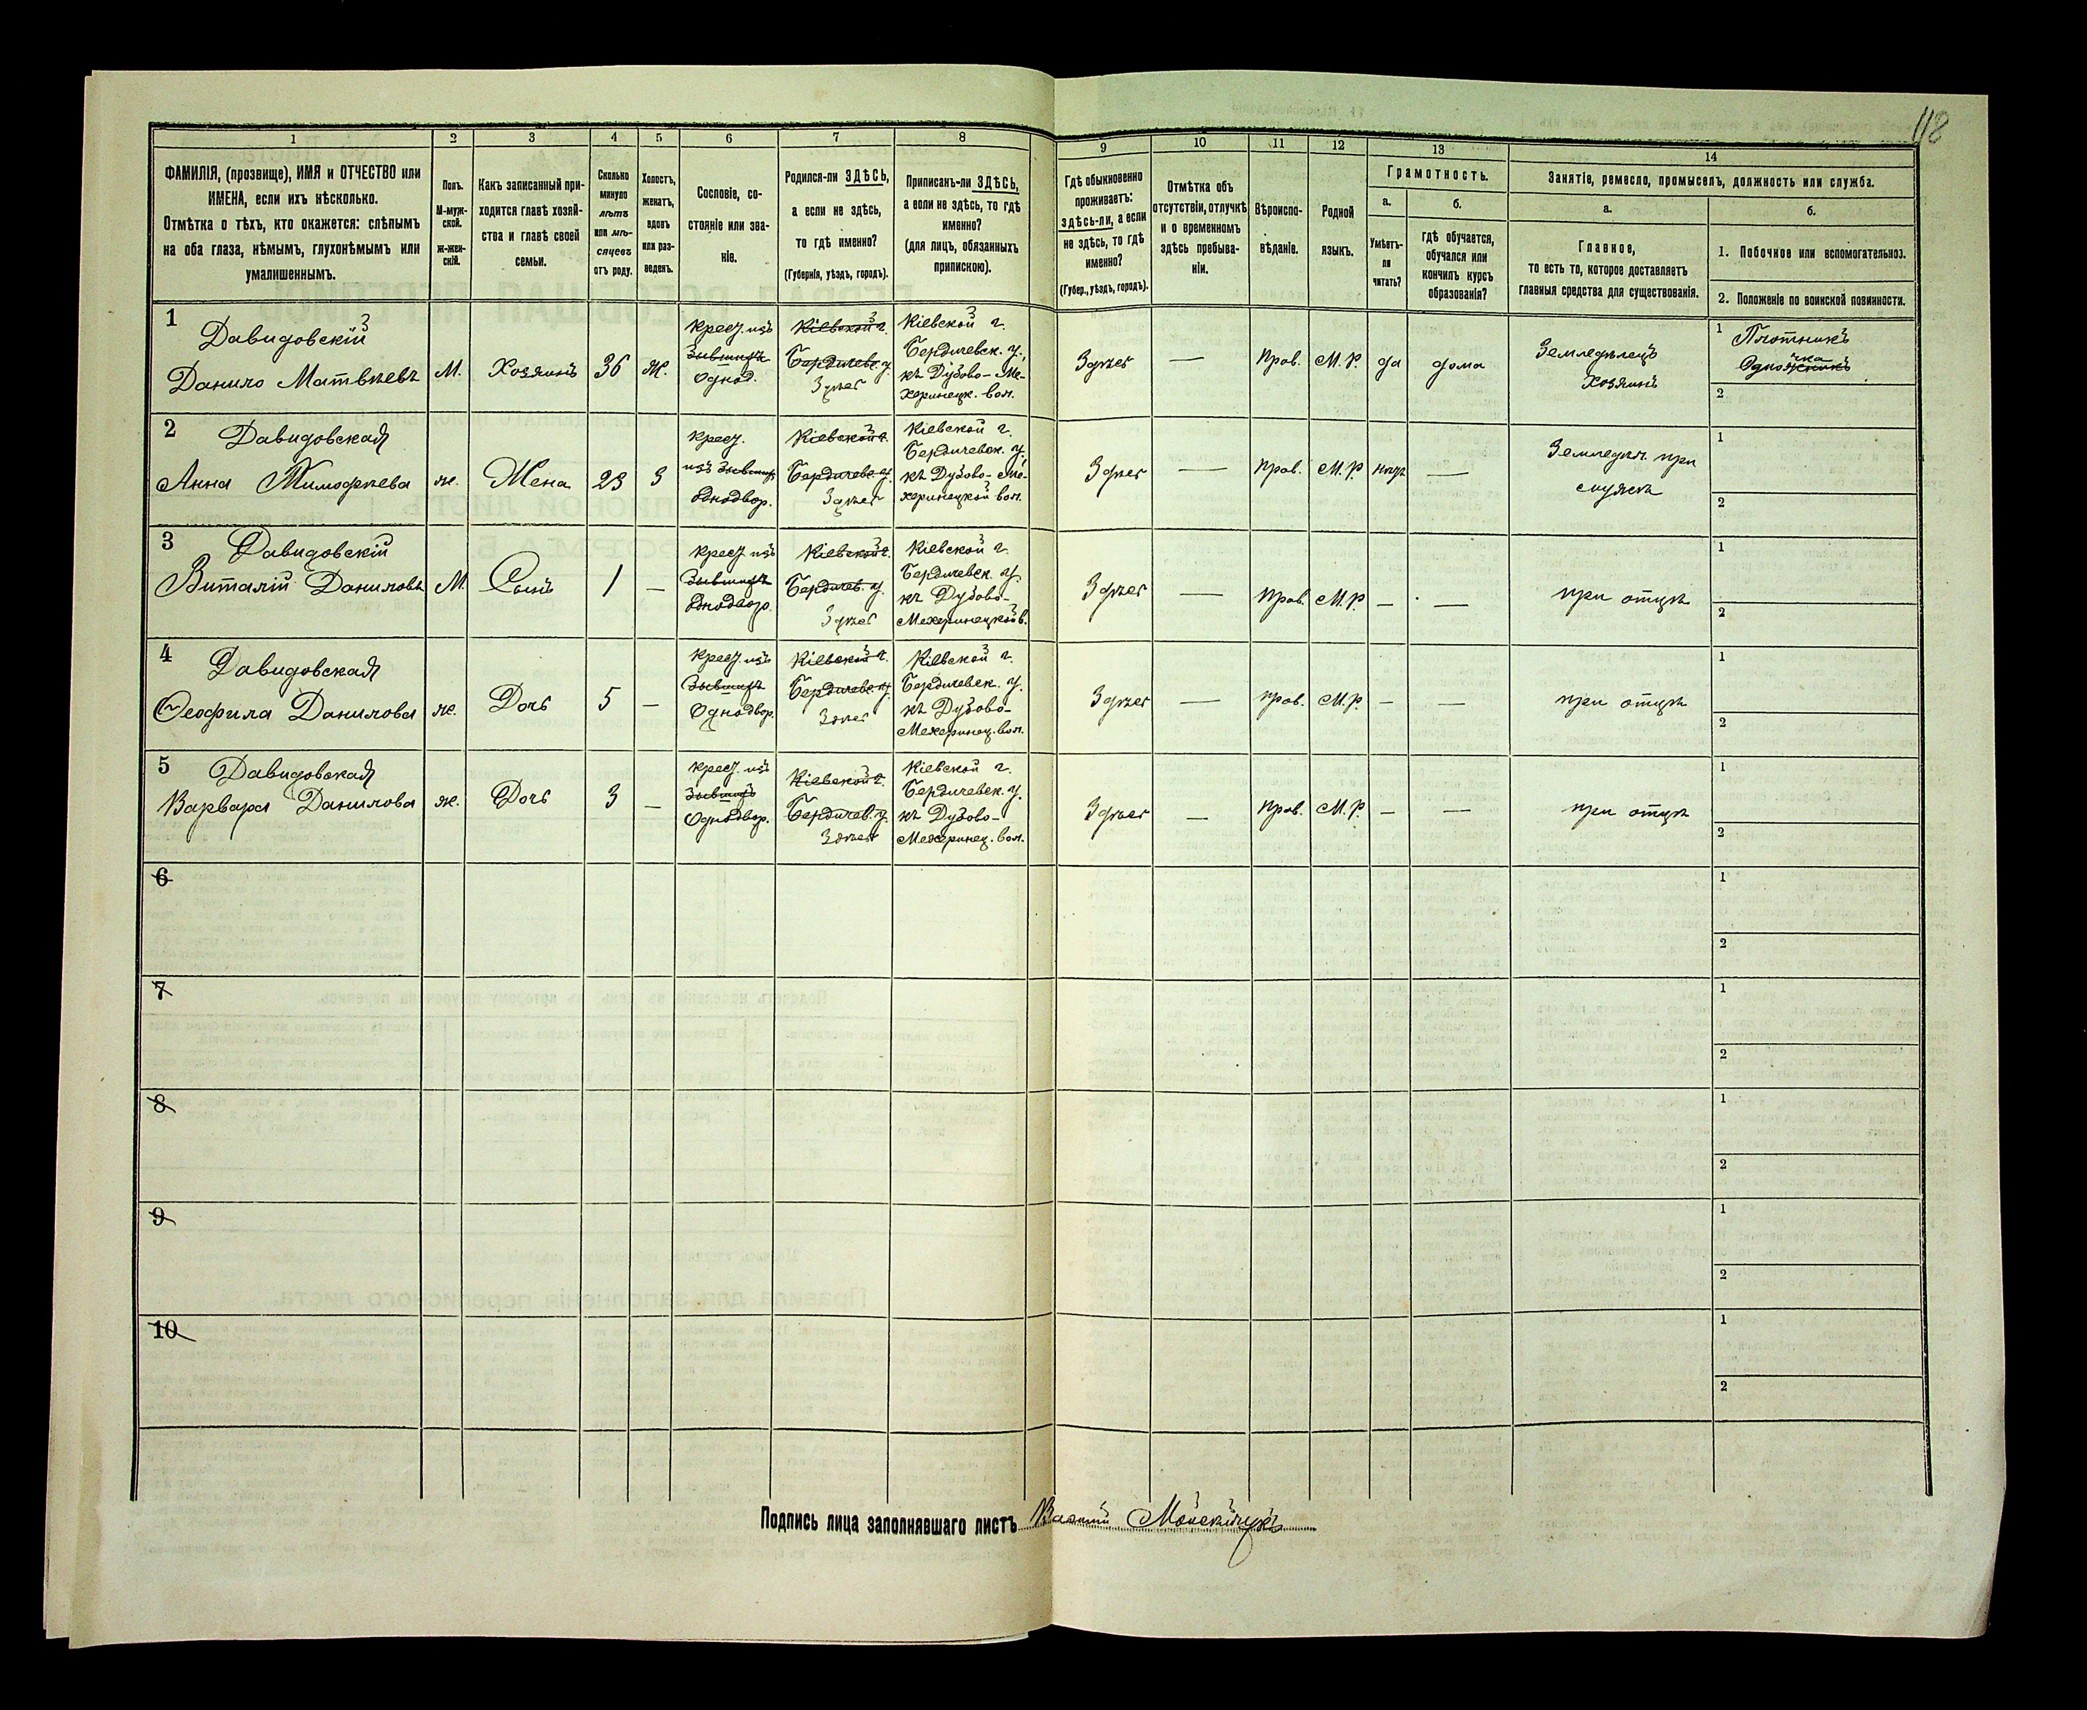 118
1 2 3 4 5 6 7 8 9 10 11 12 13 14
ФАМИЛІЯ, (прозвище), ИМЯ и ОТЧЕСТВО или
ИМЕНА, если ихъ нѣсколько.
Отмѣтка о тѣхъ, кто окажется: слѣпымъ
на оба глаза, нѣмымъ, глухонѣмымъ или
умалишеннымъ.
Полъ.
М-муж-
ской.
ж-жен-
скій.
Какъ записанный при-
ходится главѣ хозяй-
ства и главѣ своей
семьи.
Сколько
минуло
лѣтъ
или мѣ-
сяцевъ
отъ роду.
Холостъ,
женатъ,
вдовъ
или раз-
веденъ.
Сословіе, со-
стояніе или зва-
ніе.
Родился-ли ЗДѢСЬ,
а если не здѣсь,
то гдѣ именно?
(Губернія, уѣздъ, городъ).
Приписанъ-ли ЗДѢСЬ,
а если не здѣсь, то гдѣ
именно?
(для лицъ, обязанныхъ
припискою).
Гдѣ обыкновенно
проживаетъ:
ЗДѢСЬ-ЛИ, а если
не здѣсь, то гдѣ
именно?
(Губер., уѣздъ, городъ).
Отмѣтка объ
отсутствіи, отлучкѣ
и о временномъ
здѣсь пребыва-
ніи.
Вѣроиспо-
вѣданіе.
Родной
языкъ.
Грамотность.
а.
Умѣетъ-
ли
читать?
б.
гдѣ обучается,
обучался или
кончилъ курсъ
образованія?
Занятіе, ремесло, промыселъ, должность или служба.
а.
Главное,
то есть то, которое доставляетъ
главныя средства для существованія.
б.
1. Побочное или вспомогательное.
2. Положеніе по воинской повинности.
1
Давидовскій
Данило Матвѣевъ
М.
Хозяинъ
36
ж.
крест. изъ
бывшихъ
однод.
Кіевской г.
Бердичевс. у.
Здѣсь
Кіевской г.
Бердичевск. у.,
къ Дубово-Ме-
херинецк. вол.
Здѣсь
—
Прав.
М.Р.
да
дома
Земледѣлецъ
хозяинъ
1 Плотникъ
2
2
Давидовская
Анна Тимофѣева
ж.
Жена
23
З
крест.
изъ бывших
однодвор.
Кіевской г.
Бердичевс. у.
Здѣсь
Кіевской г.
Бердичевск. у.
къ Дубово-Ме-
херинецкой вол.
Здѣсь
—
прав.
М.Р.
нѣтъ
—
Земледѣл. при
мужѣ
1
2
3
Давидовскій
Виталій Даниловъ
М.
Сынъ
1
—
крест. изъ
бывшихъ
однодвор.
Кіевской г.
Бердичев. у.
Здѣсь
Кіевской г.
Бердичевск. у.
къ Дубово-
Мехеринецкой в.
Здѣсь
—
Прав.
М.Р.
—
—
при отцѣ
1
2
4
Давидовская
Ѳеофила Данилова
ж.
Дочь
5
—
крест. изъ
бывших
Однодвор.
Кіевской г.
Бердичевс. у.
Здѣсь
Кіевской г.
Бердичевск. у.
къ Дубово-
Мехеринец. вол.
Здѣсь
—
прав.
М.Р.
—
—
при отцѣ
1
2
5
Давидовская
Варвара Данилова
ж.
Дочь
3
—
крест. изъ
бывшихъ
Однодвор.
Кіевской г.
Бердичев. у.
Здѣсь
Кіевской г.
Бердичевск. у.
къ Дубово-
Мехеринец. вол.
Здѣсь
—
Прав.
М.Р.
—
—
при отцѣ
1
2
6
1
2
7
1
2
8
1
2
9
1
2
10
1
2
Подпись лица заполнявшаго листъ